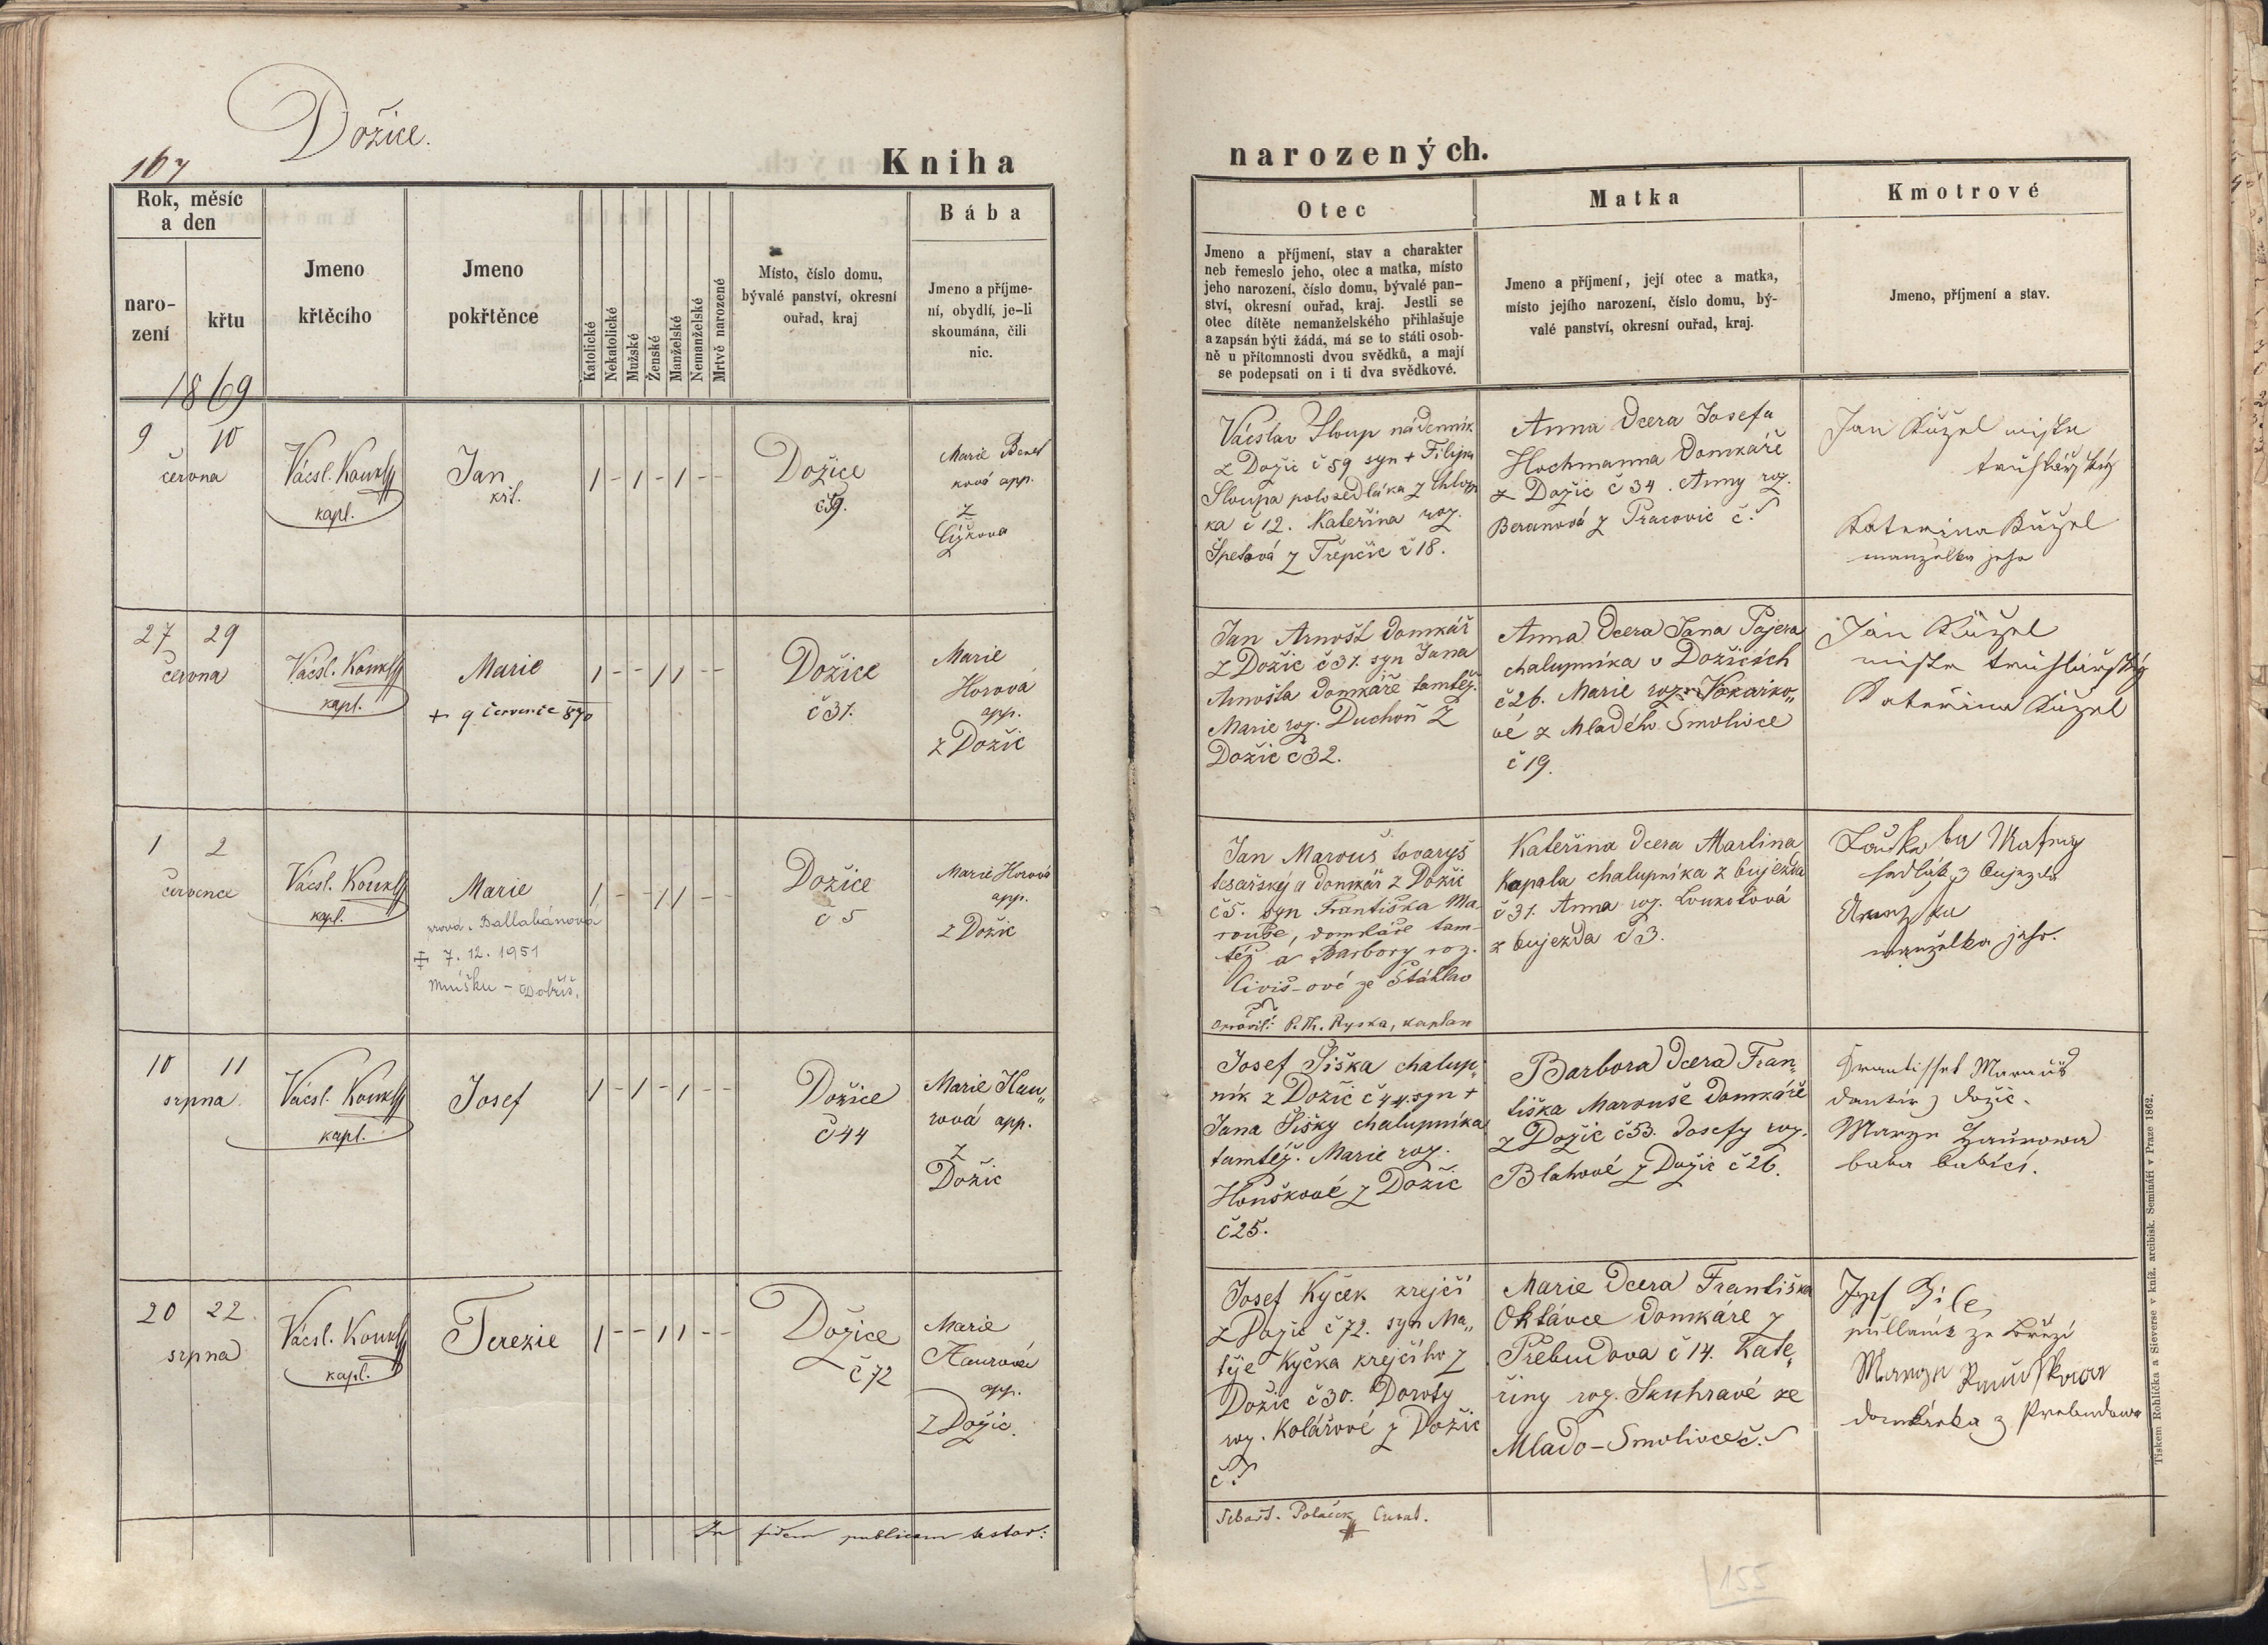 Dožice.
167
Kniha
Rok, měsíc
a den
naro-
zení
křtu
Jmeno
křtěcího
Jmeno
pokřtěnce
Katolické
Nekatolické
Mužské
Ženské
Manželské
Nemanželské
Mrtvě narozené
Místo, číslo domu,
bývalé panství, okresní
ouřad, kraj
Bába
Jmeno a příjme-
ní, obydlí, je-li
skoumána, čili
nic.
1869
9 10
června
Václ. Koukl
kapl.
Jan
křt.
1 - 1 - 1 - -
Dožice
č 59.
Marie Beneš
ková app.
z
Čížkova
27 29
června
Václ. Koukl
kapl.
Marie
+ 9 července 870
1 - - 1 1 - -
Dožice
č 31.
Marie
Horova
app.
z Dožic
1 2
července
Václ. Koukl
kapl.
Marie
vdova Ballabánová
7. 12. 1951
Mníšku - Dobříš.
1 - - 1 1 - -
Dožice
č 5
Marie Horová
app.
z Dožic
10 11
srpna
Václ. Koukl
kapl.
Josef
1 - 1 - 1 - -
Dožice
č 44
Marie Hau„
rová app.
z
Dožic
20 22.
srpna
Václ. Koukl
kapl.
Terezie
1 - - 1 1 - -
Dožice
č 72
Marie
Haurová
app.
z Dožic.
In fidem publicam testor:
narozených.
Otec
Jmeno a příjmení, stav a charakter
neb řemeslo jeho, otec a matka, místo
jeho narození, číslo domu, bývalé pan-
ství, okresní ouřad, kraj. Jestli se
otec dítěte nemanželského přihlašuje
a zapsán býti žádá, má se to státi osob-
ně u přítomnosti dvou svědků, a mají
se podepsati on i ti dva svědkové.
Matka
Jmeno a příjmení, její otec a matka,
místo jejího narození, číslo domu, bý-
valé panství, okresní ouřad, kraj.
Kmotrové
Jmeno, příjmení a stav.
Václav Sloup nádenník
z Dožic č 59 syn + Filipa
Sloupa polosedláka z Chlup
ka č 12. Kateřina roz.
Špetová z Třepčic č 18.
Anna dcera Josefa
Hochmanna domkáře
z Dožic č 34. Anny roz.
Beranová z Pracovic č. ?
Jan Kůžel mistr
truhlářský
Katerina Kůžel
manželka jeho
Jan Arnošt domkář
z Dožic č 31. syn Jana
Arnošta domkáře tamtéž.
Marie roz. Duchoň z
Dožic č 32.
Anna dcera Jana Pajera
chalupníka v Dožicích
č 26. Marie roz. Kokaiko„
vé z Mladého Smolivce
č 19.
Jan Kůžel
mistr truhlářský
Kateřina Kůžel
Jan Marouš tovaryš
tesařský a domkář z Dožic
č 5. syn Františka Ma
rouše, domkáře tam-
též a Barbory roz.
Civiš-ové ze Štáhlav
opravil: P. Th. Ryska, kaplan
Kateřina dcera Martina
Kapala chalupníka z bujezda
č 31. Anna roz. Loukotová
z bujezda č 3.
sedlák z bujezda
manželka jeho.
Josef Šiška chalup„
ník z Dožic č 44. syn +
Jana Šišky chalupníka
tamtéž. Marie roz.
Houškové z Dožic
č 25.
Barbora dcera Fran„
tiška Marouše domkáře
z Dožic č 53. Josefy roz.
Blahové z Dožic č 26.
Frantisset Marauš
Dožic.
Marye Haurowa
baba babící.
Josef Kyček krejčí
z Dožic č 72. syn Ma„
těje Kyčka krejčího z
Dožic č 30. Doroty
roz. Kolářové z Dožic
č. ?
Marie dcera Františka
Oktávce domkáře z
Přebudova č 14. Kate„
řiny roz. Skuhravé ze
Mlado-Smolivce č. ?
Josef
Marye
domkárka z Prebudowa
Šebast. Poláček Curat.
155
Tiskem Rohlíčka a Sieverse v kníž. arcibisk. Semináři v Praze 1862.